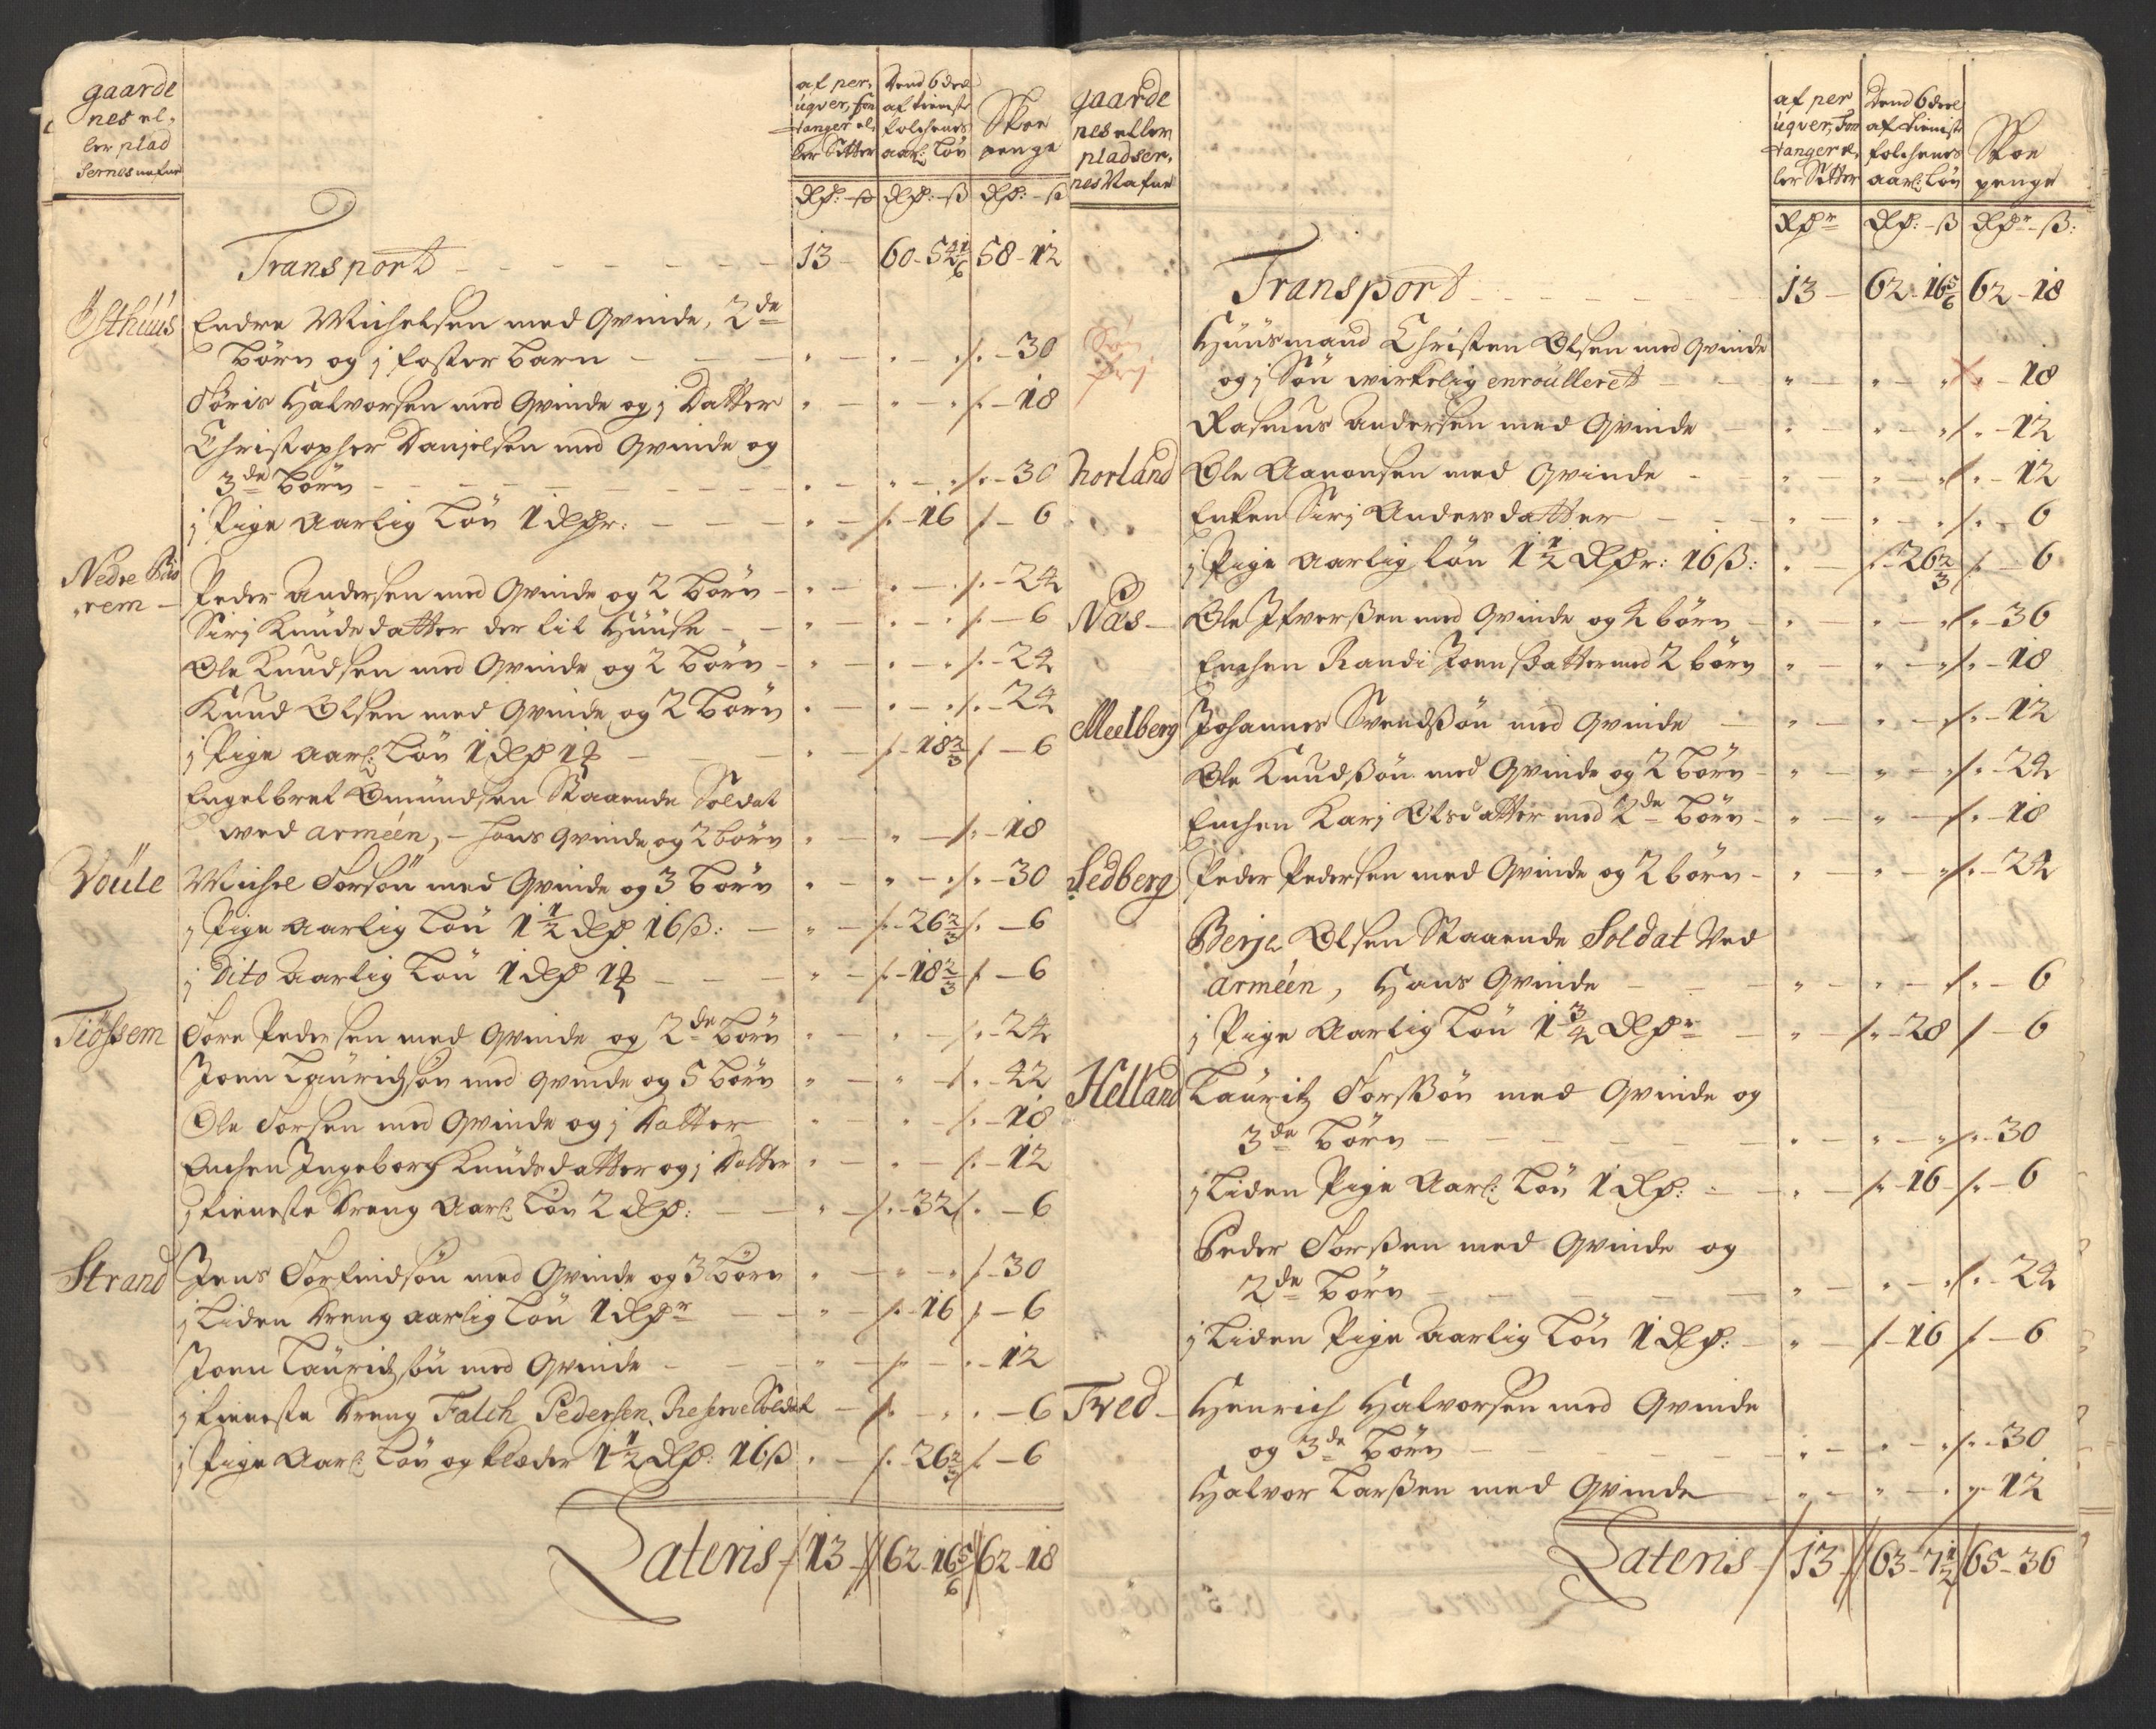 gaarde
nes el-
ler plad
sernes nafne
af per-
uqver, Fon
tanger el-
ler Setter
Dend 6 deel
af tieniste
folchenes
aarl: Løn
Skoe
penge
Rdr: - ß Rdr: - ß Rdr: - ß
Transport - 13 - 60 - 54 1/6 58 - 12
Østhuus Endre Michelsen med Qvinde, 2de
Børn og j foster barn - 30
Siøris Halvorsen med Qvinde og j Datter - 18
Christopher Danjelsen med Qvinde og
3de Børn - 30
j Pige Aarlig Løn 1 Rdr: - 16 - 6
Nedre
rem - Peder Andersen med Qvinde og 2 Børn - 24
Sirj Knudsdatter der til Huuse - 6
Ole Knudsen med Qvinde og 2 Børn - 24
Knud Olsen med Qvinde og 2 Børn - 24
j Pige Aarl: Løn 1 Rdr 1 - 18 2/3 - 6
Engelbret Omundsen Staaende Soldat
wed arméen, - hans Qvinde og 2 børn - 18
Voule Michel Torsøn med Qvinde og 3 Børn - 30
j Pige Aarlig Løn 1 1/2 Rdr 16 ß: - 26 2/3 - 6
j Dito Aarlig Løn 1 Rdr 1 - 18 2/3 - 6
Tiössem Tore Pedersen med Qvinde og 2de Børn - 24
Joen Lauridsøn med Qvinde og 5 Børn - 42
Ole Torsen med Qvinde og j Datter - 18
Enchen Ingeborg Knudsdatter og j Datter - 12
j tieneste Dreng Aarl: Løn 2 Rdr: - 32 - 6
Strand Jens Torfindsøn med Qvinde og 3 Børn - 30
j Liden Dreng aarlig Løn 1 Rdr - 16 - 6
Joen Lauridsøn med Qvinde - 12
j tieneste Dreng Falch Pedersen, Reserve Soldat - 6
j Pige Aarl: Løn og klæder 1 1/2 Rdr: 16 ß - 26 2/3 - 6
Lateris - 13 - 62 - 16 5/6 62 - 18
gaarde
nes eller
pladser-
nes Nafne
af per
uqver, Fon
tanger el-
ler Setter
Dend 6 deel
af tieniste
folchenes
aarl: Løn
Skoe
penge
Rdr Rdr: - ß Rdr - ß:
Transport - 13 - 62 - 16 5/6 62 - 18
Huusmand Christen Olsen med Qvinde
Søn
og j Søn wirkelig enroulleret - 18
Rasmus Andersen med Qvinde - 12
Norland Ole Aanonsen med Qvinde - 12
Enken Sirj Andersdatter - 6
j Pige Aarlig løn 1 1/2 Rdr: 16 ß: - 26 2/3 - 6
Nas - Ole Ifverßen med Qvinde og 4 børn - 36
Enchen Randi Joensdatter med 2 børn - 18
Meelberg Johannes Svendßøn med Qvinde - 12
Ole Knudßøn med Qvinde og 2 Børn - 24
Enchen Karj Olsdatter med 2de Børn - 18
Sedberg Peder Pedersen med Qvinde og 2 børn - 24
Berje Olsen Staaende Soldat Ved
Arméen, Hans Qvinde - 6
j Pige Aarlig Løn 1 3/4 Rdr - 28 - 6
Helland Lauritz Torsßøn med Qvinde og
3de Børn - 30
j Liden Pige Aarl: Løn 1 Rdr: - 16 - 6
Peder Torßen med Qvinde og
2de Børn - 24
j Liden Pige Aarlig Løn 1 Rdr: - 16 - 6
Tved - Henrich Halvorsen med Qvinde
og 3de Børn - 30
Halvor Larßen med Qvinde - 12
Lateris - 13 - 63 - 7 1/2 65 - 36